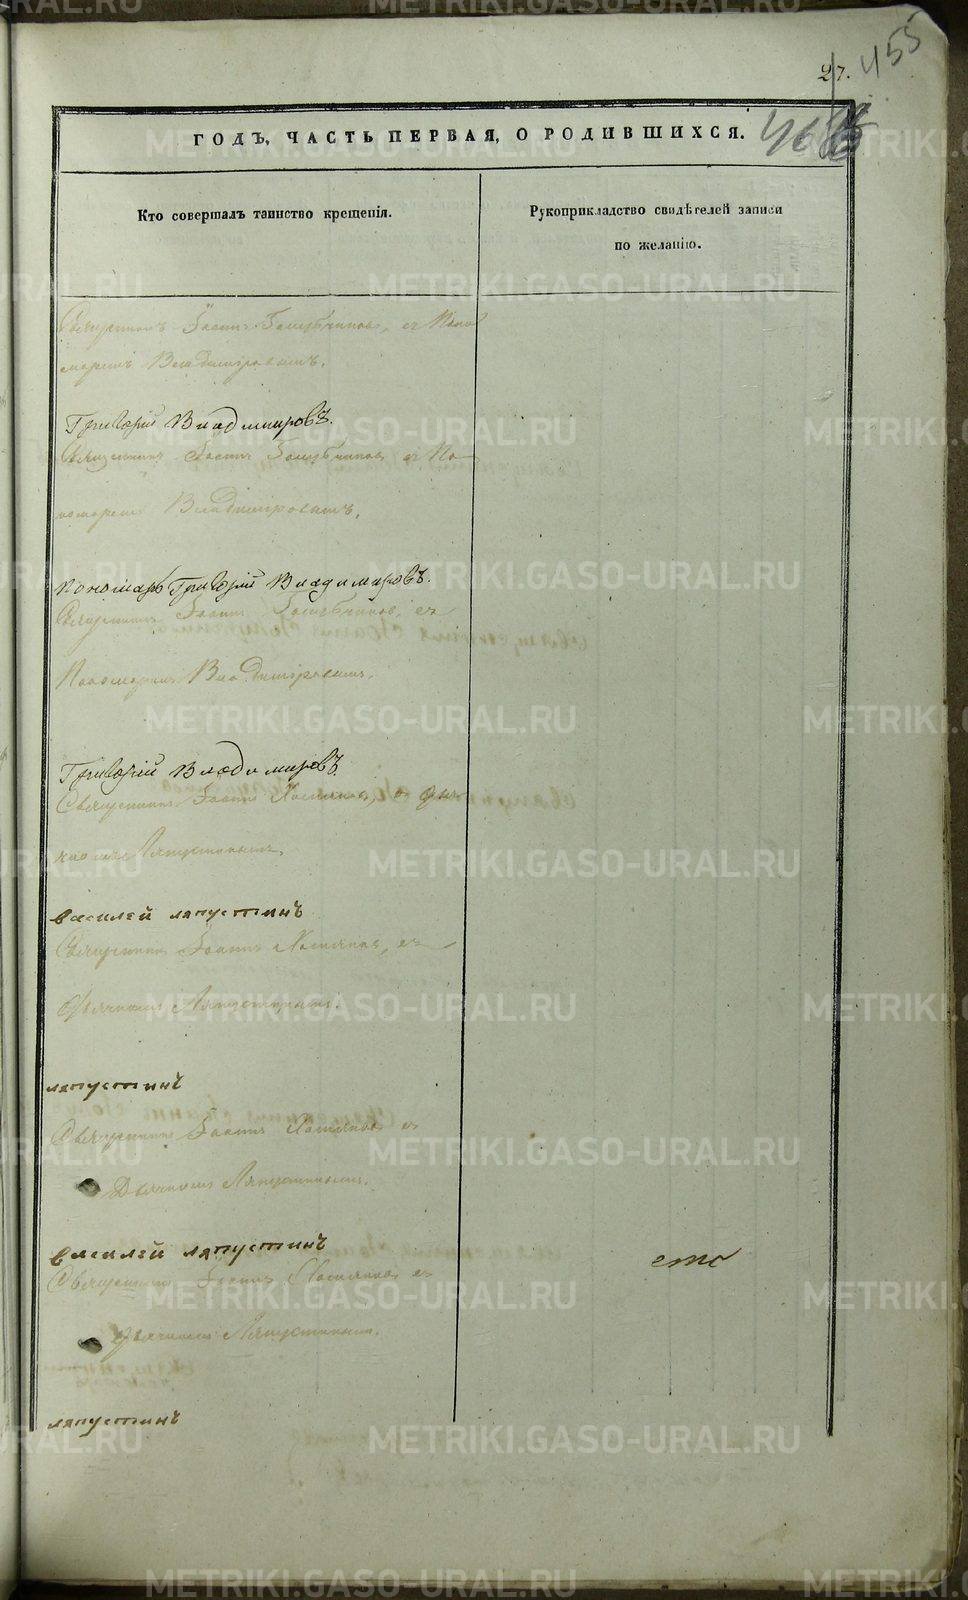 27. 455
ГОДЪ, ЧАСТЬ ПЕРВАЯ, О РОДИВШИХСЯ.
Кто совершалъ таинство крещенія.
Рукоприкладство свидѣтелей записи
по желанію.
Священникъ Іоаннъ Голубчиковъ, съ Поно
маремъ Владиміровымъ.
Григорій Владимировъ.
Священникъ Іоаннъ Голубчиковъ съ По-
номаремъ Владиміровымъ.
Пономарь Григорій Владимировъ.
Священникъ Іоаннъ Голубчиковъ, съ
Пономаремъ Владиміровымъ.
Григорій Владимировъ
Священникъ Іоаннъ Хомяковъ, съ Дья
чкомъ Ляпустинымъ.
василей ляпустинъ
Священникъ Іоаннъ Хомяковъ, съ
Дьячкомъ Ляпустинымъ.
ляпустинъ
Священникъ Іоаннъ Хомяковъ съ
Дьячкомъ Ляпустинымъ.
василей ляпустинъ
Священникъ Іоаннъ Хомяковъ съ
Дьячкомъ Ляпустинымъ.
ляпустинъ
METRIKI.GASO-URAL.RU